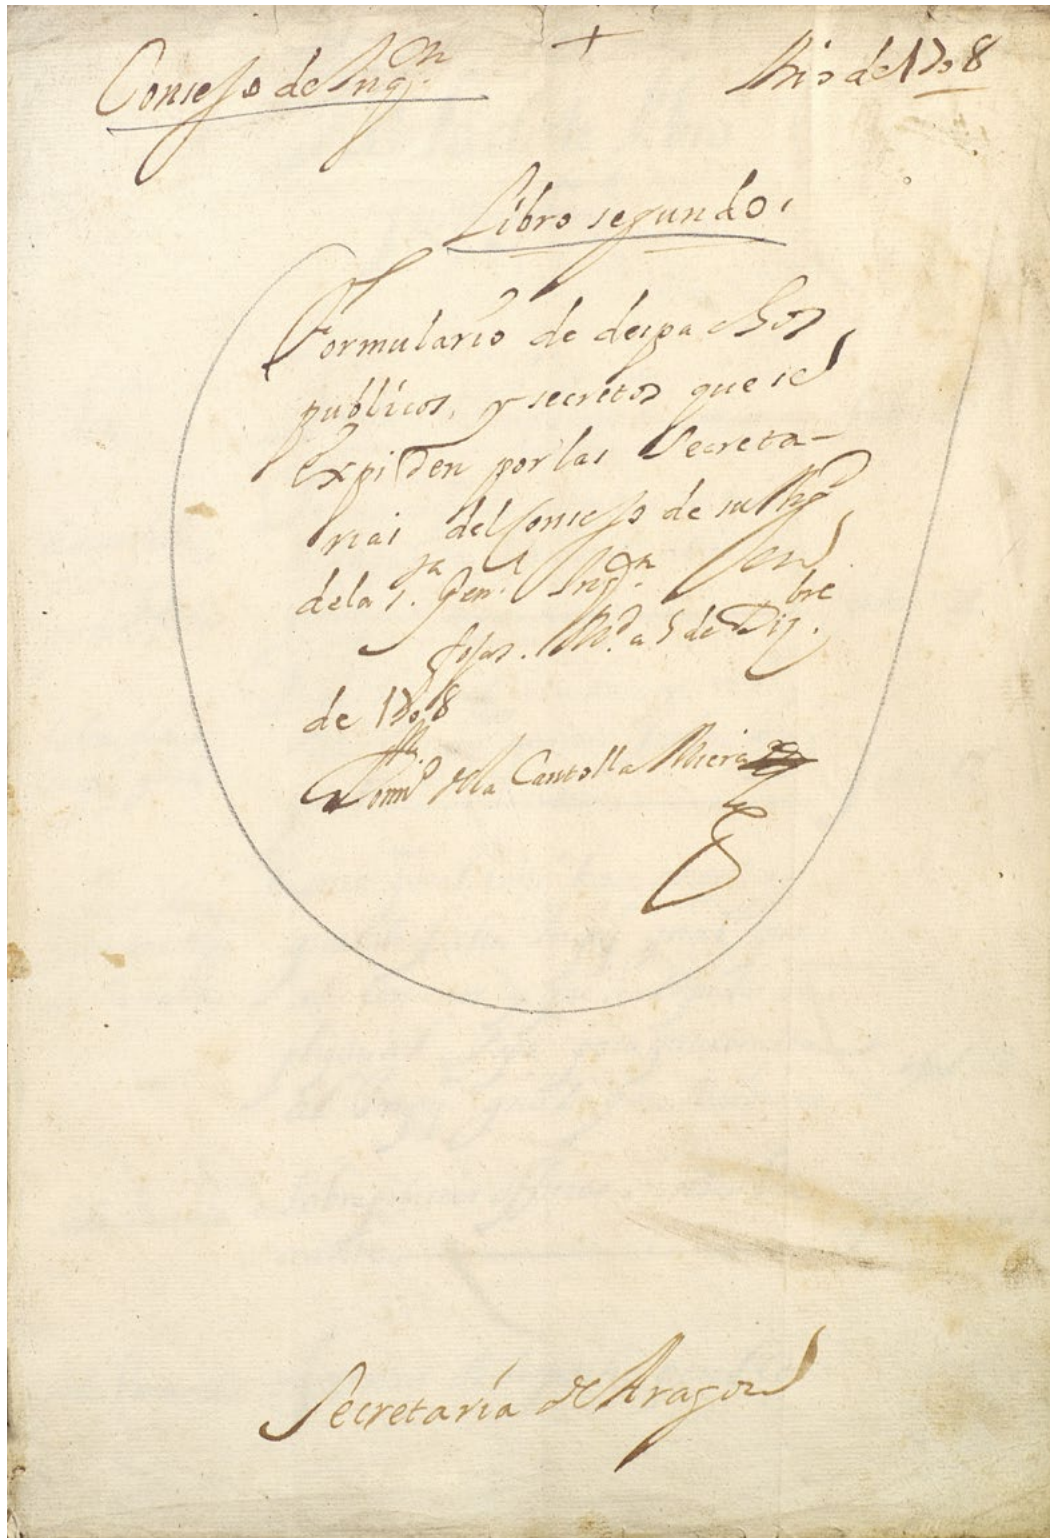 Consejo de Inqon.
+
Año de 1708
Libro segundo.
Formulario de despachos
publicos, y secretos que se
expiden por las Secreta-
rias del Consejo de su Mgd
de la sta. Genl. Inqon. en
fojas. Md. a 5 de Dizbre.
de 1708
Domo de la Cantolla Miera
Secretaría de Aragon